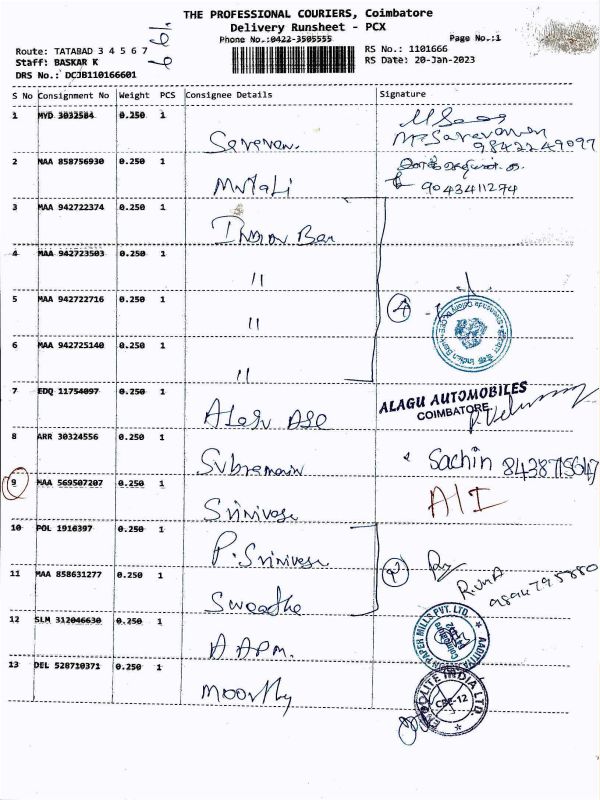 THE PROFESSIONAL COURIERS, Coimbatore
Delivery Runsheet - PCX
Phone No.:0422-3505555
Page No.:1
Route: TATABAD 3 4 5 6 7
Staff: BASKAR K
DRS No.: DCJB110166601
RS No.: 1101666
RS Date: 20-Jan-2023
S No Consignment No Weight PCS Consignee Details Signature
1 MYD 3032584 0.250 1 Saravan. M Saravanan 9842249097
2 MAA 858756930 0.250 1 9043411274
3 MAA 942722374 0.250 1 Indian Ban
4 MAA 942723503 0.250 1 〃
5 MAA 942722716 0.250 1 〃 4
6 MAA 942725140 0.250 1 〃
7 EDQ 11754097 0.250 1 ALAGU AUTOMOBILES
COIMBATORE
8 ARR 30324556 0.250 1 Subramain Sachin
9 MAA 569507207 0.250 1 Srinivase A/I
10 POL 1916397 0.250 1 P. Srinivase
11 MAA 858631277 0.250 1 Sweatha 2
12 SLM 312046630 0.250 1 A A P M. AADITYA PAPER MILLS PVT. LTD.
13 DEL 528710371 0.250 1 Moorthy INDIA LTD. CBE-12